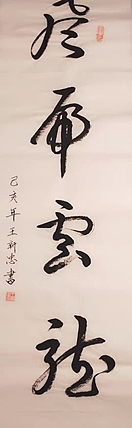 虎雲龍
己亥年王新忠書